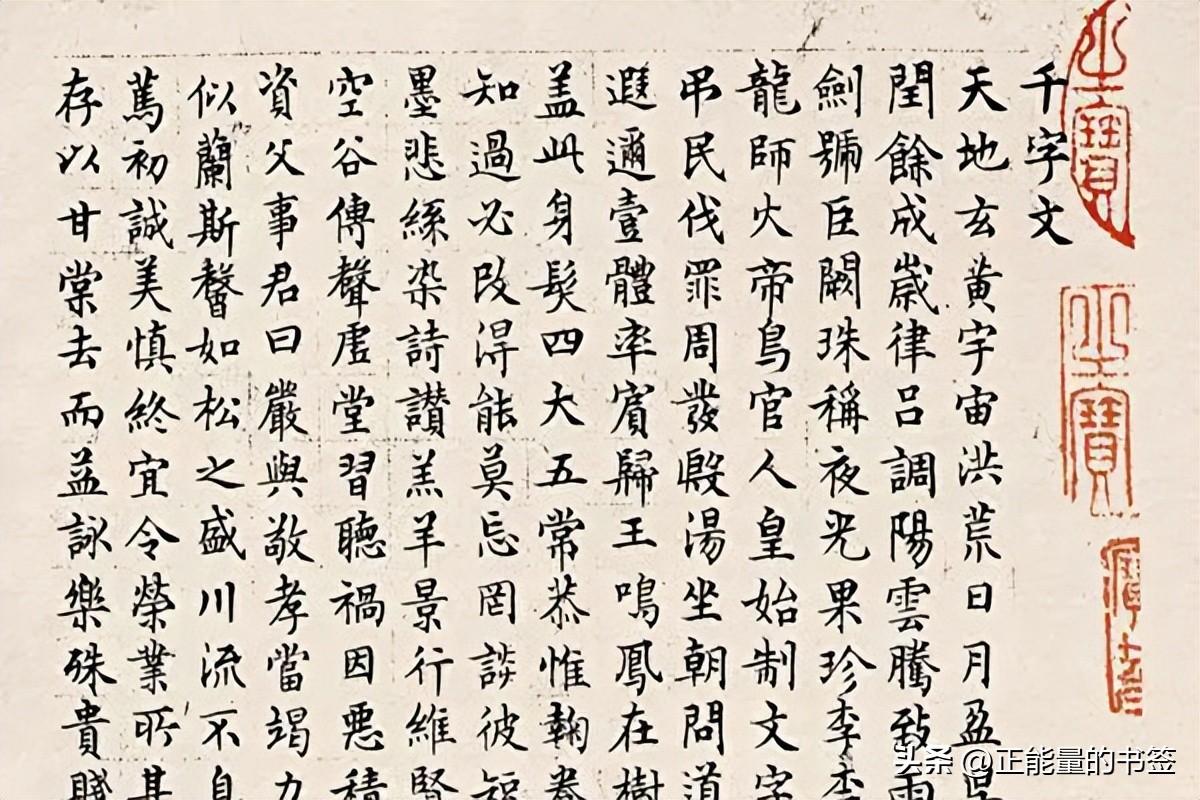 千字文
天地玄黄宇宙洪荒日月盈昃
閏餘成嵗律吕調陽雲騰致雨
劍號巨闕珠稱夜光果珍李柰
龍師火帝鳥官人皇始制文字
吊民伐罪周發殷湯坐朝問道
遐邇壹體率賓歸王鳴鳳在樹
盖此身髮四大五常恭惟鞠養
知過必改得能莫忘罔談彼短
墨悲絲染詩讚羔羊景行維賢
空谷傳聲虚堂習聽禍因惡積
資父事君曰嚴與敬孝當竭力
似蘭斯馨如松之盛川流不息
篤初誠美慎終宜令榮業所基
存以甘棠去而益詠樂殊貴賤
头条 @正能量的书签